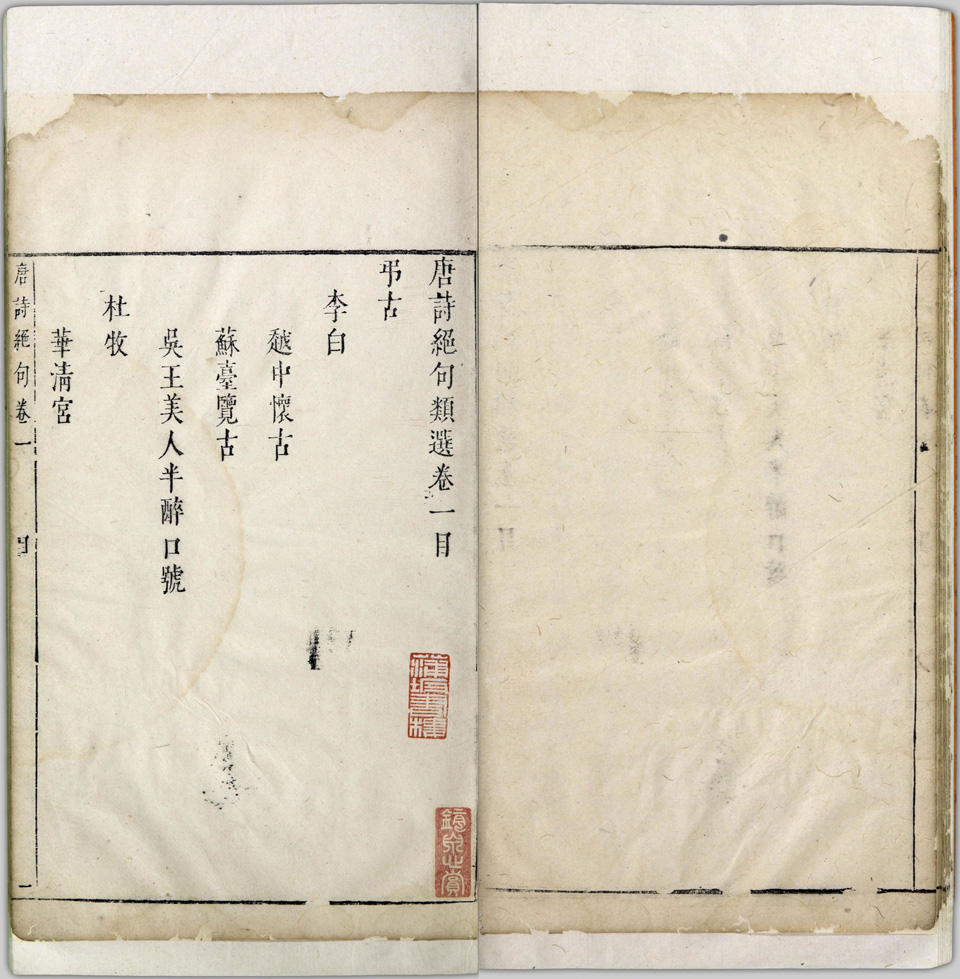 唐詩絕句類選卷一目
弔古
李白
越中懷古
蘇臺覽古
吳王美人半醉口號
杜牧
華清宮
唐詩絕句卷一 目 一
蒲坂書樓